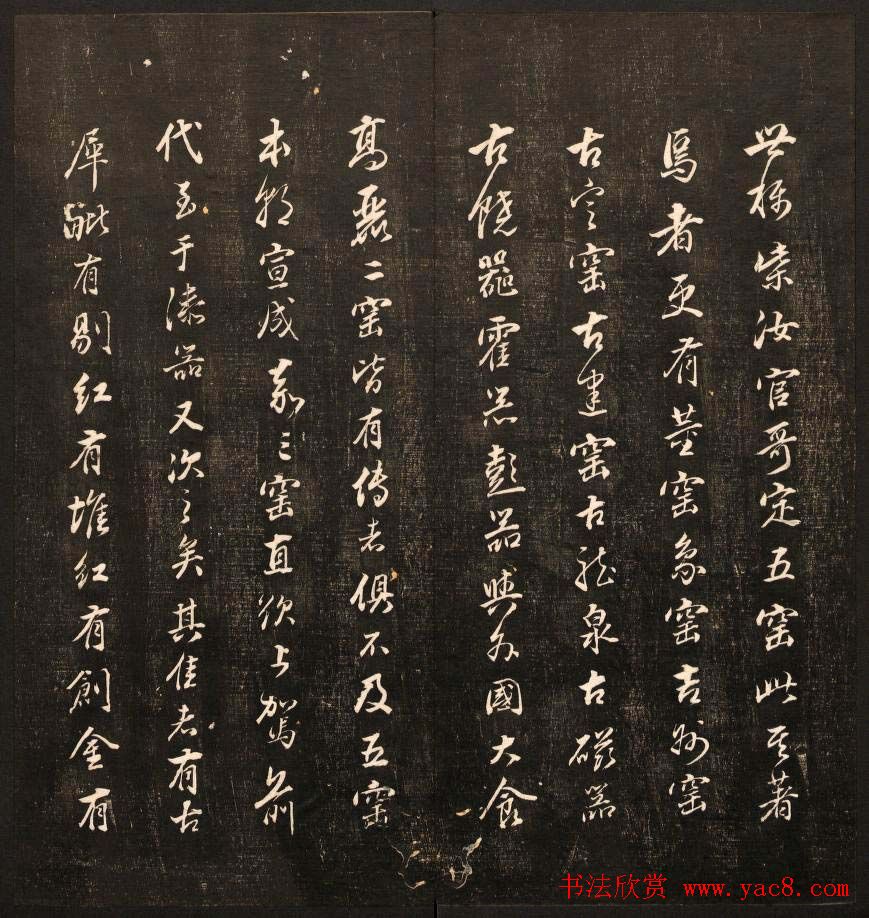 世称柴汝官哥定五窑此其著
焉者更有董窑象窑吉州窑
古定窑古建窑古龍泉古磁器
古饒器霍器彭器與外國大食
髙麗二窑皆有傳者俱不及五窑
本朝宣成嘉三窑直欲上駕前
代至于漆器又次之矣其佳者有古
犀毗有剔红有堆红有創金有
书法欣赏 www.yac8.com